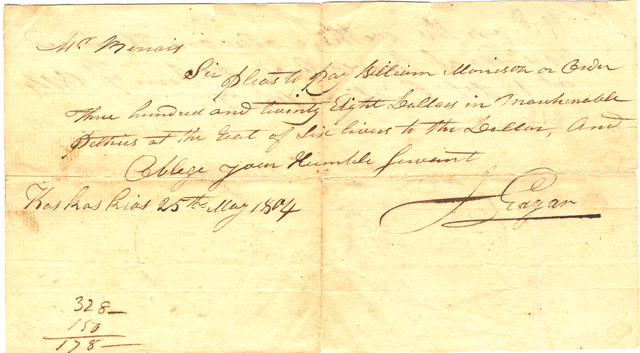 Mr Menais
Sir pleas to pay William Morrison or Order
Three hundred and twenty Eight Dollars in Marchenable
peltries at the Reat of Six livers to the Dollar, And
Oblege your Humble Servant
Kaskaskias 25th May 1804
J Edgar
328
150
178